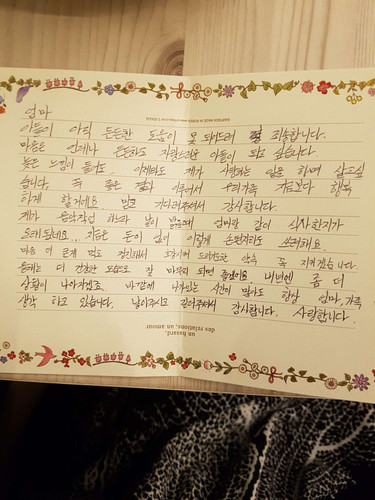 엄마
아들이 아직 든든한 도움이 못 되어드려 죄송합니다.
마음은 언제나 든든하고 자랑스러운 아들이 되고 싶습니다.
늦은 느낌이 이제라도 제가 사랑하는 일을 하며 살고싶
습니다. 꼭 좋은 결과 이루어서 우리가족 지금보다 행복
하게 할거예요. 믿고 기다려주셔서 감사합니다.
제가 음악작업 하느라 날이 엄마랑 같이 식사한지가
오래 되었네요... 지금은 돈이 없어 이렇게 손편지라도 쓰려해요.
마음 더 굳게 먹고 정진해서 약속 꼭 지키겠습니다.
올해는 더 건강한 모습으로 잘 마무리 되면 좋겠어요. 내년엔 좀 더
상황이 나아지겠죠. 바깥에 나가있는 시간이 많아도 항상 엄마, 가족
생각 하고 있습니다. 낳아주시고 길러주셔서 감사합니다. 사랑합니다.
un hasard,
des relations, un amour